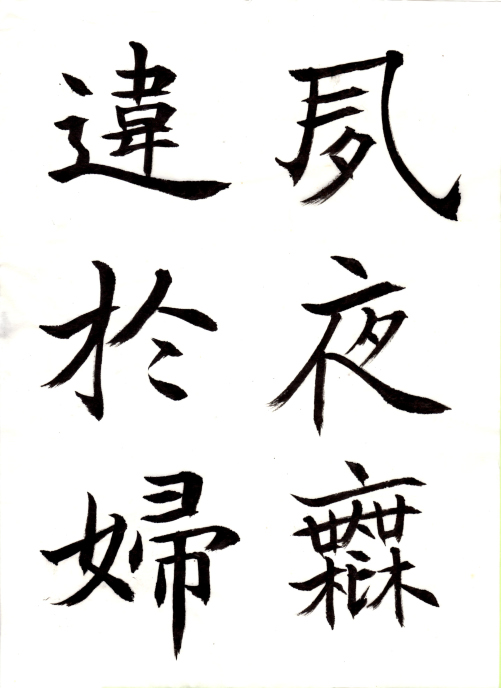 夙夜𣞣
違於婦